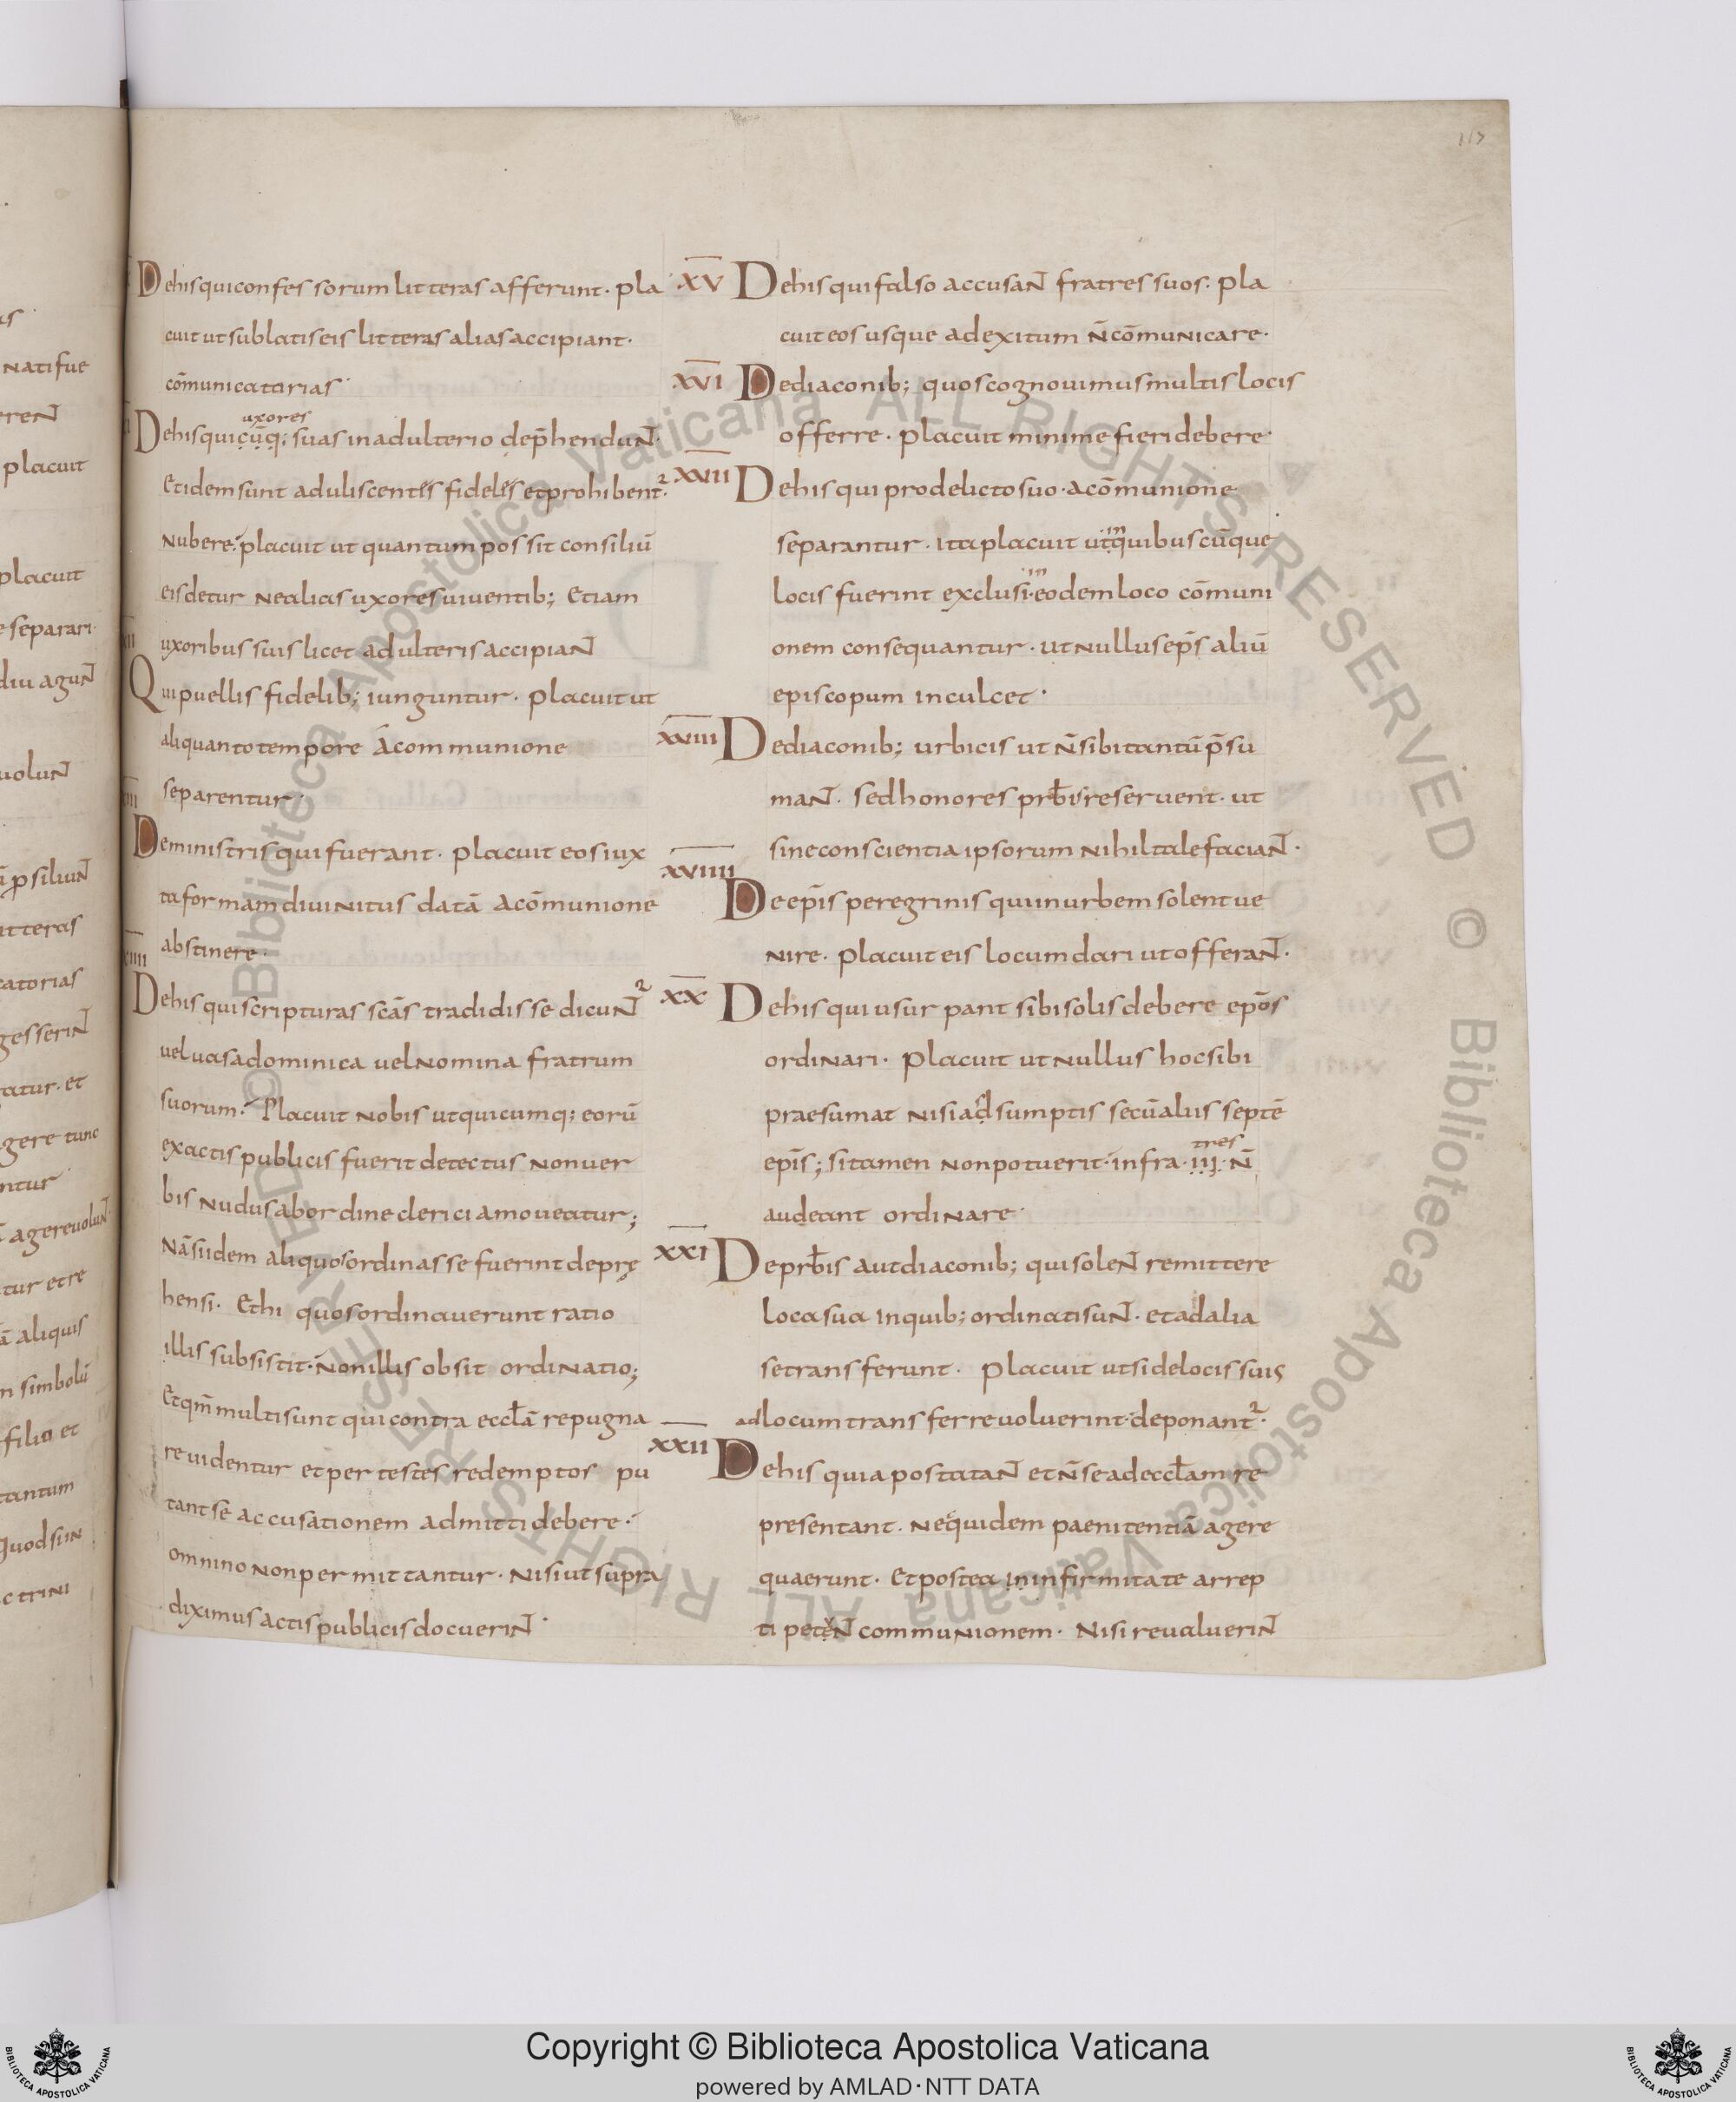 117
Dehis qui confessorum litteras afferunt· pla
cuit ut sublatis eis litteras alias accipiant·
cōmunicatorias·
uxores
Dehis qui cūq; suas in adulterio dep̄hendunt·
Et idem sunt aduliscentes fideles et prohibent᷑·
Nubere· placuit ut quantum possit consiliū
eis detur ne alias uxores uiuentib; etiam
uxoribus suis licet adulteris accipiant
Qui puellis fidelib; iunguntur· placuit ut
aliquanto tempore a communione
separentur·
Deministris qui fuerant· placuit eos iux
ta formam diuinitus datā a cōmunione
abstinere·
Dehis qui scripturas scās tradidisse dicunt᷑
uel uasa dominica uel nomina fratrum
suorum· Placuit nobis ut quicumq; eorū
ex actis publicis fuerit detectus non uer
bis nudus ab ordine clerici amoueatur;
Nā si idem aliquos ordinasse fuerint deprę
hensi· Et hi quos ordinauerunt ratio
illis subsistit· non illis obsit ordinatio;
Et qm̄ multi sunt qui contra eccłā repugna
re uidentur et per testes redemptos pu
tant se accusationem admitti debere·
omnino non permittantur· nisi ut supra
diximus actis publicis docuerint·
XV Dehis qui falso accusant fratres suos· pla
cuit eos usque ad exitum n̄ cōmunicare·
XVI Dediaconib; quos cognouimus multis locis
offerre· placuit minime fieri debere·
XVII Dehis qui pro delicto suo· a cōmunione
separantur· ita placuit ut in quibuscūque
locis fuerint exclusi· in eodem loco cōmuni
onem consequantur· ut nullus ep̄s aliū
episcopum inculcet·
XVIII Dediaconib; urbicis ut n̄ sibi tantū p̄su
mant· sed honores prb̄is reseruent· ut
sine conscientia ipsorum nihil tale faciant·
XVIIII
De ep̄is peregrinis qui in urbem solent ue
nire· placuit eis locum dari ut offerant·
XX Dehis qui usurpant sibi solis debere ep̄os
ordinari· placuit ut nullus hoc sibi
praesumat nisi adsumptis secū aliis septē
tres
ep̄is; si tamen non potuerit· infra· iii· n̄
audeant ordinare·
XXI De prb̄is aut diaconib; qui solent remittere
loca sua in quib; ordinati sunt· et ad alia
se transferunt· placuit ut si de locis suis
ad locum transferre uoluerint· deponant᷑·
XXII
Dehis qui apostatant et n̄ se ad eccłam re
presentant· ne quidem paenitentiā agere
quaerunt· Et postea in infirmitate arrep
ti petent communionem· Nisi reualuerint
as·
natifue
placuit
placuit
e separari·
diu agunt
uolunt
itteras
catorias
gesserint
atur· et
gere tunc
ntur
agere uolunt
tur et re
ā aliquis
n simbolū
filio et
tantum
Quod si in
c trini
© Biblioteca Apostolica Vaticana ALL RIGHTS RESERVED © Biblioteca Apostolica Vaticana ALL RIGHTS RESERVED
Copyright © Biblioteca Apostolica Vaticana
powered by AMLAD·NTT DATA
BIBLIOTECA APOSTOLICA VATICANA
BIBLIOTECA APOSTOLICA VATICANA